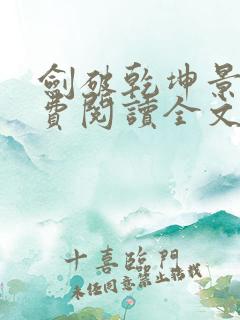 劍破乾坤景
費閱讀全文
十喜臨門
未經同意禁止轉載